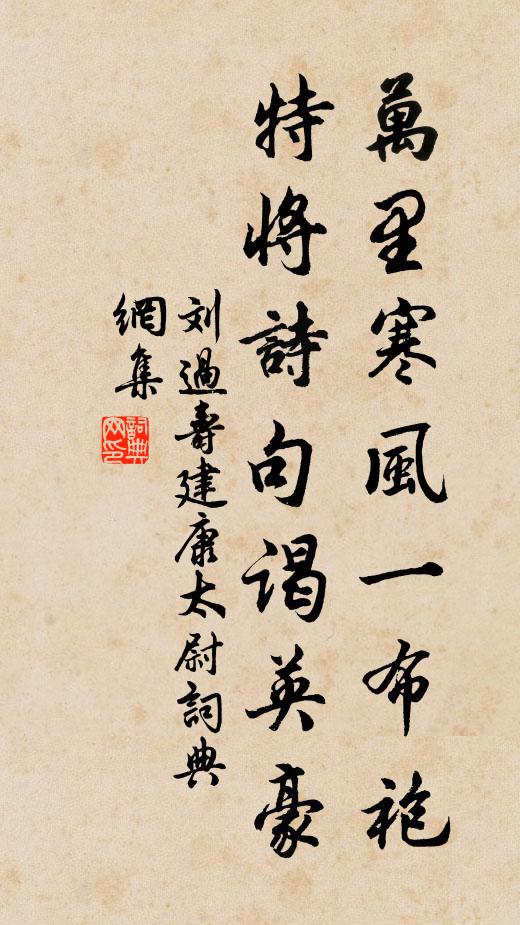 萬里寒風一布袍
特將詩句謁英豪
刘過壽建康太尉詞典
網集
詞典
网印